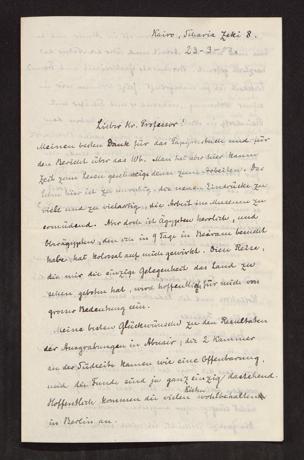 Kairo, Scharia Zeki 8.
23-3-
Lieber Hr. Professor!
Meinen besten Dank für das und für
den Bericht über das Wb. Man hat aber hier kaum
Zeit zum Lesen geschweige denn zum Arbeiten. Das
hier ist zu unruhig, der neuen Eindrücke zu
viele und zu vielartig, die Arbeit im Museum zu
ermüdend. Aber doch ist Ägypten herrlich, und
Oberägypten, den ich in 9 Tage in Beiram besucht
habe hat kolossal auf mich gewirkt. Diese Reise,
die mir die einzige Gelegenheit das Land zu
sehen geboten hat, wird hoffentlich für mich von
grosse Bedeutung sein.
Meine besten Glückwünsche zu den Resultaten
der Ausgrabungen in Abusir; die 2 Kammer
an der Südseite kamen wie eine Offenbarung.
und die Funde sind ja ganz einzig dastehend.
Hoffentlich kommen die vielen Kisten wohlbehalten
in Berlin an.